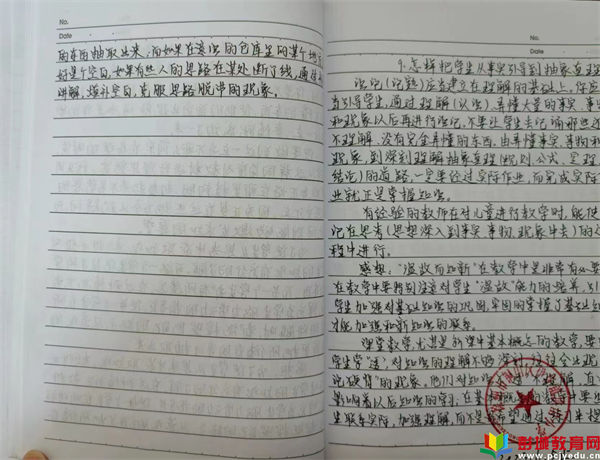 No.
Date
的东西抽取出来,而如果在
的仓库里的某个地
好是个空白,如果有些人的思路在某处断了线,
讲解,填补空白,克服思路脱节的现象。
No.
Date
9.怎样把学生从事实引导到抽象真理
识记(记熟)应当建立在理解的基础上,你应
当引导学生,通过理解(认识)、弄懂大量的事实、事
和现象以后再进行识记,不要让学生去记诵那些还
不理解、没有完全弄懂的东西,由弄懂事实、事物和
现象,到深刻理解抽象真理(规则、公式、定理、
结论)的道路,一定要经过实际作业,而完成实际
业就正是掌握知识。
有经验的教师在对儿童进行教学时,能使
记在思考(思想深入到事实、事物、现象中去)的
程中进行。
感想:“温故而知新”在教学中是非常有必要
在教学中要特别注意对学生“温故”能力的培养,引
学生加强对基础知识的巩固,牢固的掌握了基础知
才能加强和新知识的联系。
课堂教学,尤其是新课中基本概念的教学,要
学生学“透”,对知识的理解不够深
记硬背”的现象,他们对知识
不理解,直
影响着以后知识的学习,在基本概念的教学中要
联系实际,加强理解,而不是希望通过
彭城教育网
www.pcjyedu.cn